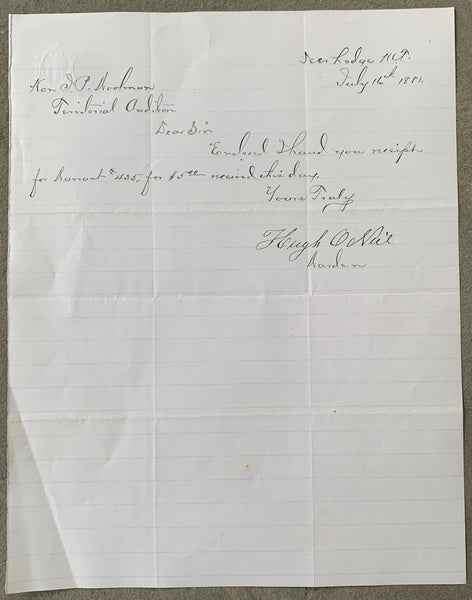 Deer Lodge M.T.
July 16th 1881.
Hon J. P. Woolman
Territorial Auditor
Dear Sir
Enclosed I hand you receipt
for Warrant # 435. for $5 00 received this day.
Yours Truly
Hugh O'Neil
Warden